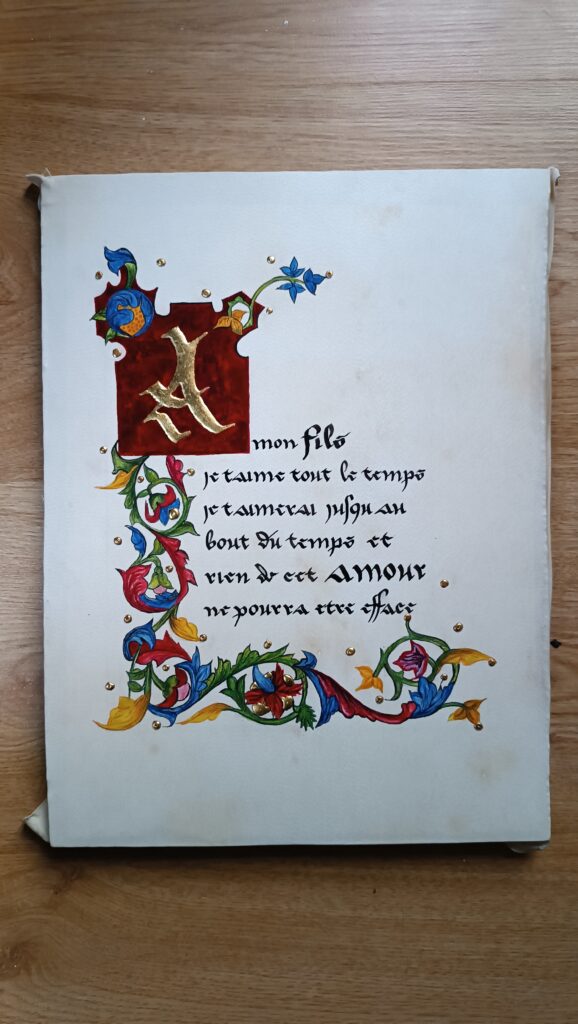 A mon fils
je taime tout le temps
je taimerai jusqu au
bout du temps et
rien de cet AMOUR
ne pourra etre efface